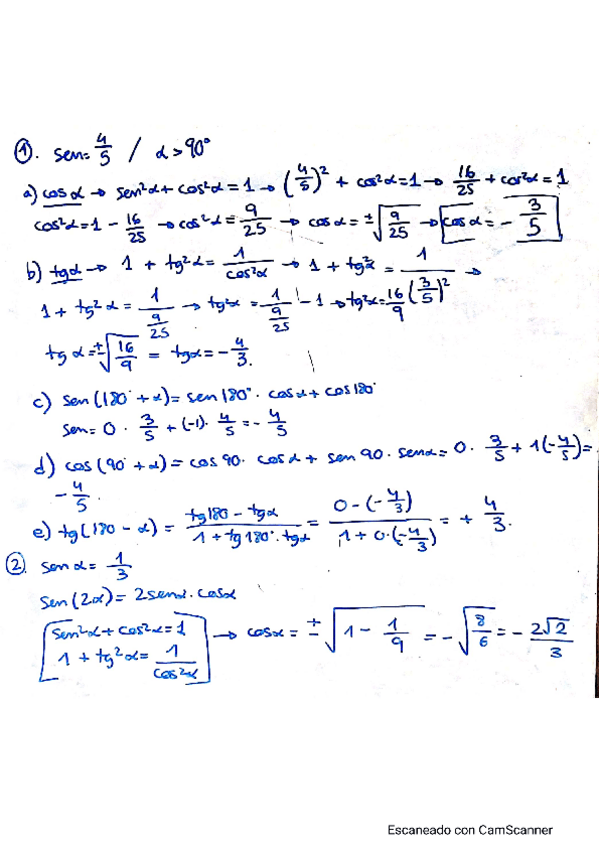 ①. sen = 4/5 / α > 90°
a) cos α → sen²α + cos²α = 1 → (4/5)² + cos²α = 1 → 16/25 + cos²α = 1
cos²α = 1 - 16/25 → cos²α = 9/25 → cos α = ±√(9/25) → cos α = - 3/5
b) tgα → 1 + tg²α = 1/cos²α → 1 + tg²α = 1/(3/5)² →
1 + tg²α = 1/(9/25) → tg²α = 1/(9/25) - 1 → tg²α = 16/9
tg α = ±√(16/9) = tgα = - 4/3.
c) sen(180° + α) = sen 180° · cos α + cos 180°
sen = 0 · 3/5 + (-1) · 4/5 = - 4/5
d) cos(90° + α) = cos 90 · cos α + sen 90 · sen α = 0 · 3/5 + 1(-4/5) =
- 4/5.
e) tg(180 - α) = (tg180 - tgα)/(1 + tg180° · tgα) = (0 - (-4/3))/(1 + 0 · (-4/3)) = + 4/3.
② sen α = 1/3
sen(2α) = 2senα · cosα
sen²α + cos²α = 1
1 + tg²α = 1/cos²α → cosα = ±√(1 - 1/9) = -√(8/6) = - 2√2/3
Escaneado con CamScanner